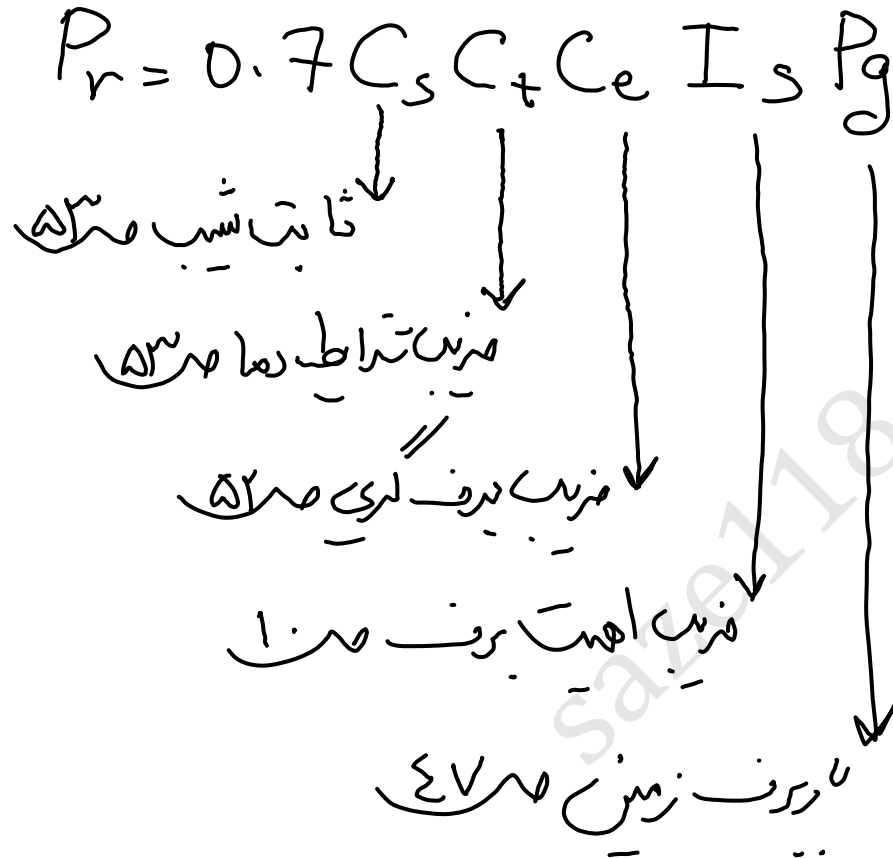 Pr = 0.7 Cs Ct Ce Is Pg
ثابت شیب ص ۵۳
ضریب شرایط دما ص ۵۳
ضریب برف گیری ص ۵۲
ضریب اهمیت برف ص ۱۰
بار برف زمین ص ۴۷
saze118